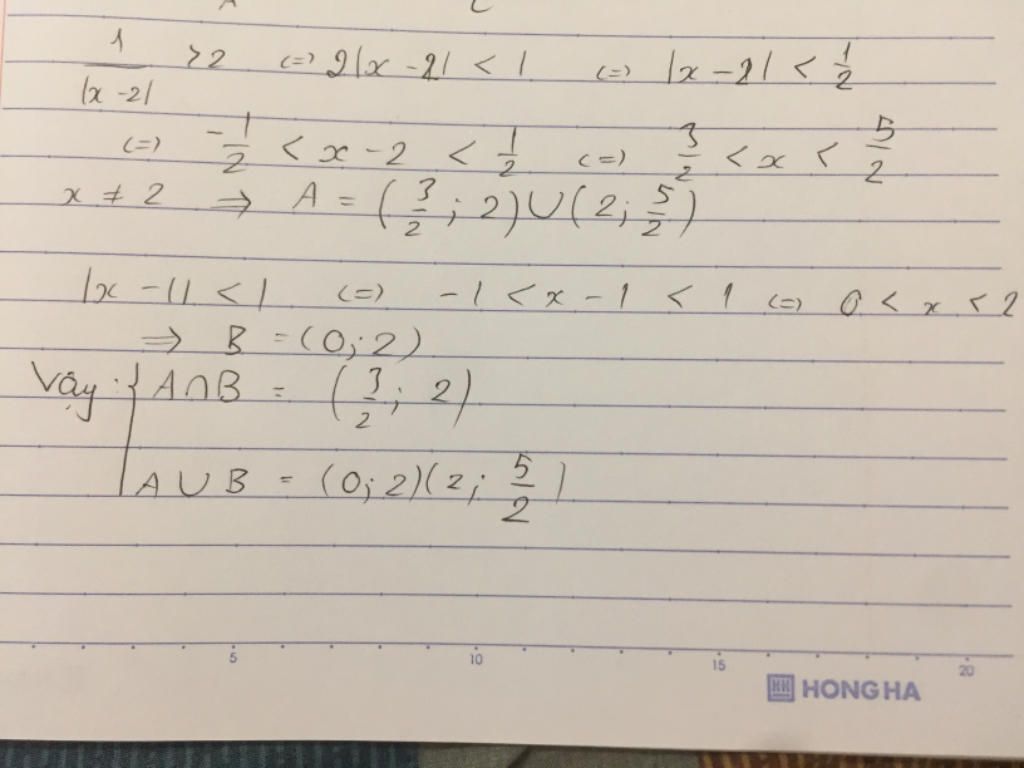 1/|x-2| > 2 <=> 2|x-2| < 1 <=> |x-2| < 1/2
<=> -1/2 < x-2 < 1/2 <=> 3/2 < x < 5/2
x ≠ 2 => A = (3/2; 2)∪(2; 5/2)
|x-1| < 1 <=> -1 < x-1 < 1 <=> 0 < x < 2
=> B = (0; 2)
Vậy: { A∩B = (3/2; 2)
A∪B = (0; 2)(2; 5/2)
5 10 15 20
HONG HA